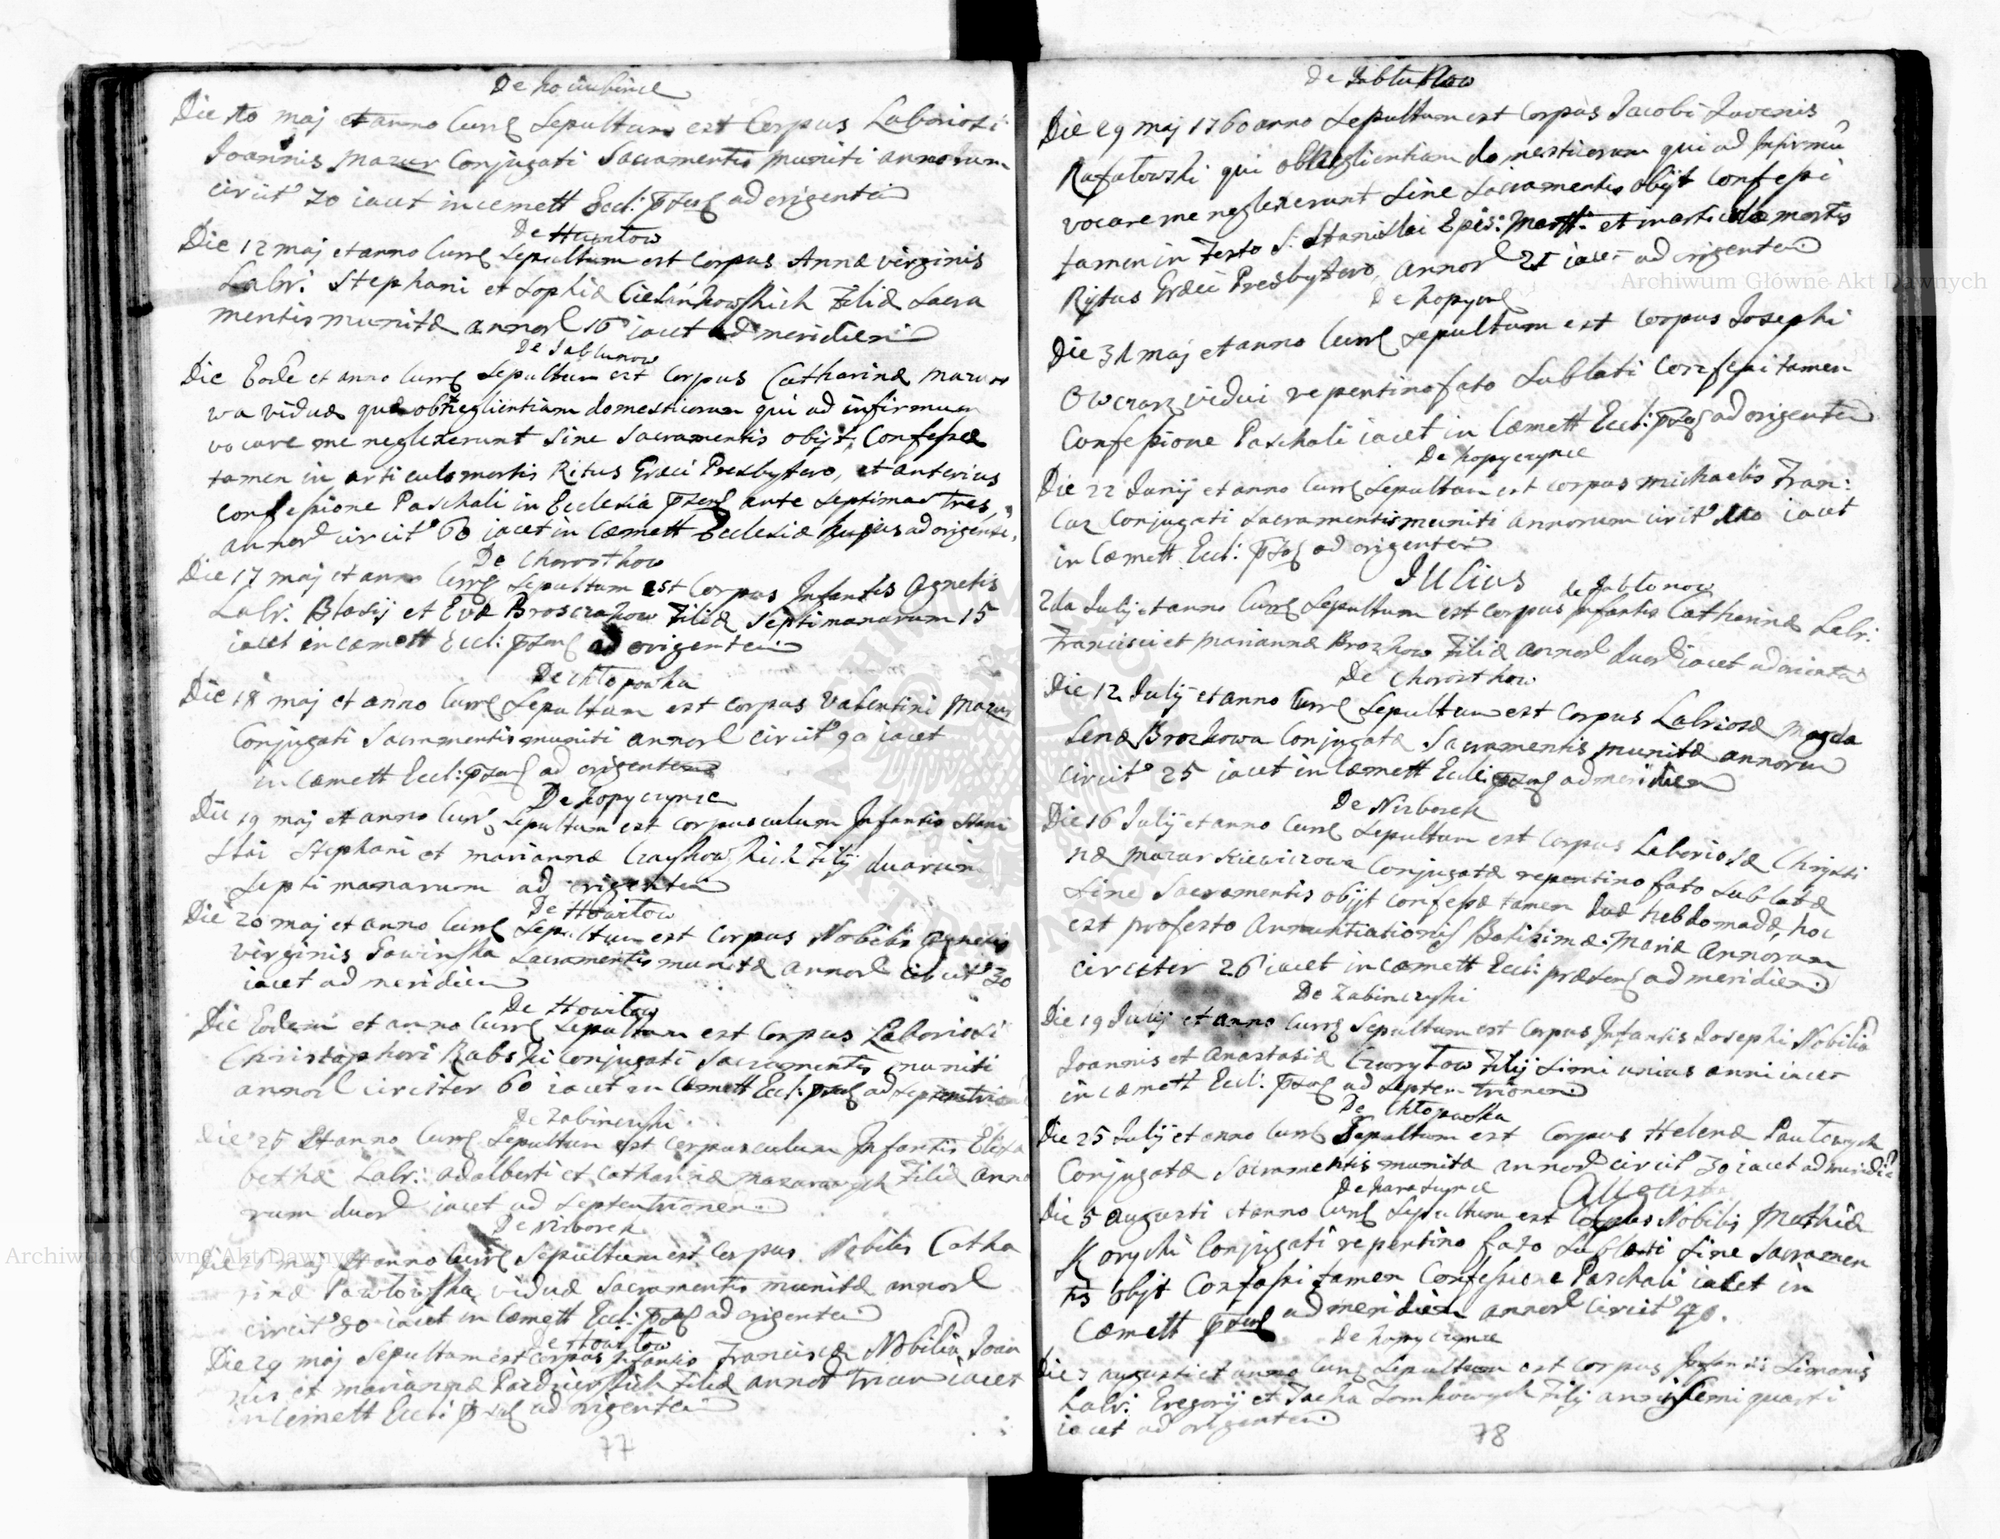 De
Die 10 maj et anno Curr Sepultum est Corpus Laboriosi
Joannis Mazur Conjugati Sacramentis muniti annorum
circit 70 iacet in cemett Eccl: ad origentem
De Howilow
Die 12 maj et anno Curr Sepultum est Corpus Annæ virginis
Labr: Stephani et Sophiæ Filiæ Sacra
mentis munitæ annor 16 iacet ad meridiem
De Jablunow
Die Eode et anno Curr Sepultum est Corpus Catharinæ Mazuro
wa viduæ quæ ob neglientiam domesticorum qui ad infirmum
vocare me neglexerunt Sine Sacramentis obijt, Confessæ
tamen in articulo mortis Ritus Græci Presbytero, et anterius
confessione Paschali in Ecclesia ante Septimas Tres,
annor circit 60 iacet in Cæmett Ecclesiæ hujus ad origen:
De Chorosthow
Die 17 maj et anno Curr Sepultum est Corpus Infantis Agnetis
Labr: Blasij et Evæ Broszkow Filiæ Septimanarum 15
iacet in cæmett Eccl: ad origentem
De Chłopowka
Die 18 maj et anno Curr Sepultum est Corpus Valentini Mazur
Conjugati Sacramentis muniti annor circit 90 iacet
in Cæmett Eccl: ad origentem
De Kopyczynce
Die 19 maj et anno Curr Sepultum est corpusculum Infantis Stani
slai Stephani et mariannæ Filij duarum
Septimanarum ad origentem
De Howilow
Die 20 maj et anno Curr Sepultum est Corpus Nobilis Agnetis
virginis Sawinska Sacramentis munitæ annor circit 30
iacet ad meridiem
De Howilow
Die Eodem et anno Curr Sepultum est Corpus Laboriosi
Christophori Rabski Conjugati Sacramentis muniti
annor circiter 60 iacet in Cæmett Eccl: ad Septemtrion
De Zabinczyki
Die 25 Et anno Curr Sepultum est corpusculum Infantis Elisa
bethæ Labr: adalberti et Catharinæ Filiæ anno
rum duor iacet ad Septentrionem
De Nizborek
Die maj Et anno Curr Sepultum est Corpus Nobilis Catha
rinæ Pawlowska viduæ Sacramentis munitæ annor
circit 80 iacet in Cæmett Eccl: ad origentem
De Howilow
Die 29 maj Sepultum est Corpus Infantis Franciscæ Nobiliu Joan
nis et mariannæ Filiæ annor Trium iacet
in Cemett Eccl: ad origentem
77
De Jablunow
Die 29 maj 1760 anno Sepultum est Corpus Jacobi Juvenis
Rafalowski qui ob neglientiam domesticorum qui ad Infirmu
vocare me neglexerunt Sine Sacramentis obijt Confessi
tamen in Festo S: Stanislai Epis: Mart: et in articulo mortis
Rytus Græci Presbytero, annor 21 iacet ad origentem
De Kopycz
Die 31 maj et anno Curr Sepultum est Corpus Josephi
Owczarz vidui repentino fato Sublati Confessi tamen
Confessione Paschali iacet in Cæmett Eccl: ad origentem
De Kopyczynce
Die 22 Junij et anno Curr Sepultum est corpus Michaelis Fran:
Conjugati Sacramentis muniti annorum circit iacet
in Cæmett Eccl: ad origentem
Julius
De Jablonow
2da Julij et anno Curr Sepultum est corpus Infantis Catharinæ Labr:
Francisci et Mariannæ Brozkow Filiæ annor duor iacet ad
De Chorosthow
Die 12 Julij et anno Curr Sepultum est Corpus Labriosæ Magda
lenæ Brozkowa Conjugatæ Sacramentis munitæ annorum
circit 25 iacet in Cæmett Eccl: ad meridiem
De Nizborek
Die 16 Julij et anno Curr Sepultum est Corpus Laboriosæ Chrysti
næ Mazurkiewiczowa Conjugatæ repentino fato Sublatæ
Sine Sacramentis obijt Confessæ tamen duæ hebdomadæ, hoc
est profesto Annuntiationis Batissimæ: Mariæ Annorum
circiter 26 iacet in cæmett Eccl: præsens ad meridiem
De Zabinczyki
Die 19 Julij et anno Curr Sepultum est Corpus Infantis Josephi Nobiliu
Joannis et Anastasiæ Filij Simi unius anni iacet
in cæmett Eccl: ad Septemtrionem
De Chłopowka
Die 25 Julij et anno Curr Sepultum est Corpus Helenæ
Conjugatæ Sacramentis munitæ annor circit 30 iacet ad meridie
Augustus
Die 5 augusti et anno Curr Sepultum est Corpus Nobilis Mathiæ
Conjugati repentino fato Sublati Sine Sacramen
tis obijt Confessi tamen Confessione Paschali iacet in
Cæmett ad meridiem annor circit 40.
De Kopyczynce
Die 7 augusti et anno Curr Sepultum est Corpus Infantis Simonis
Labr: Gregorij et Filij anni Semi quarti
iacet ad origentem
78
Archiwum Główne Akt Dawnych
Archiwum Główne Akt Dawnych